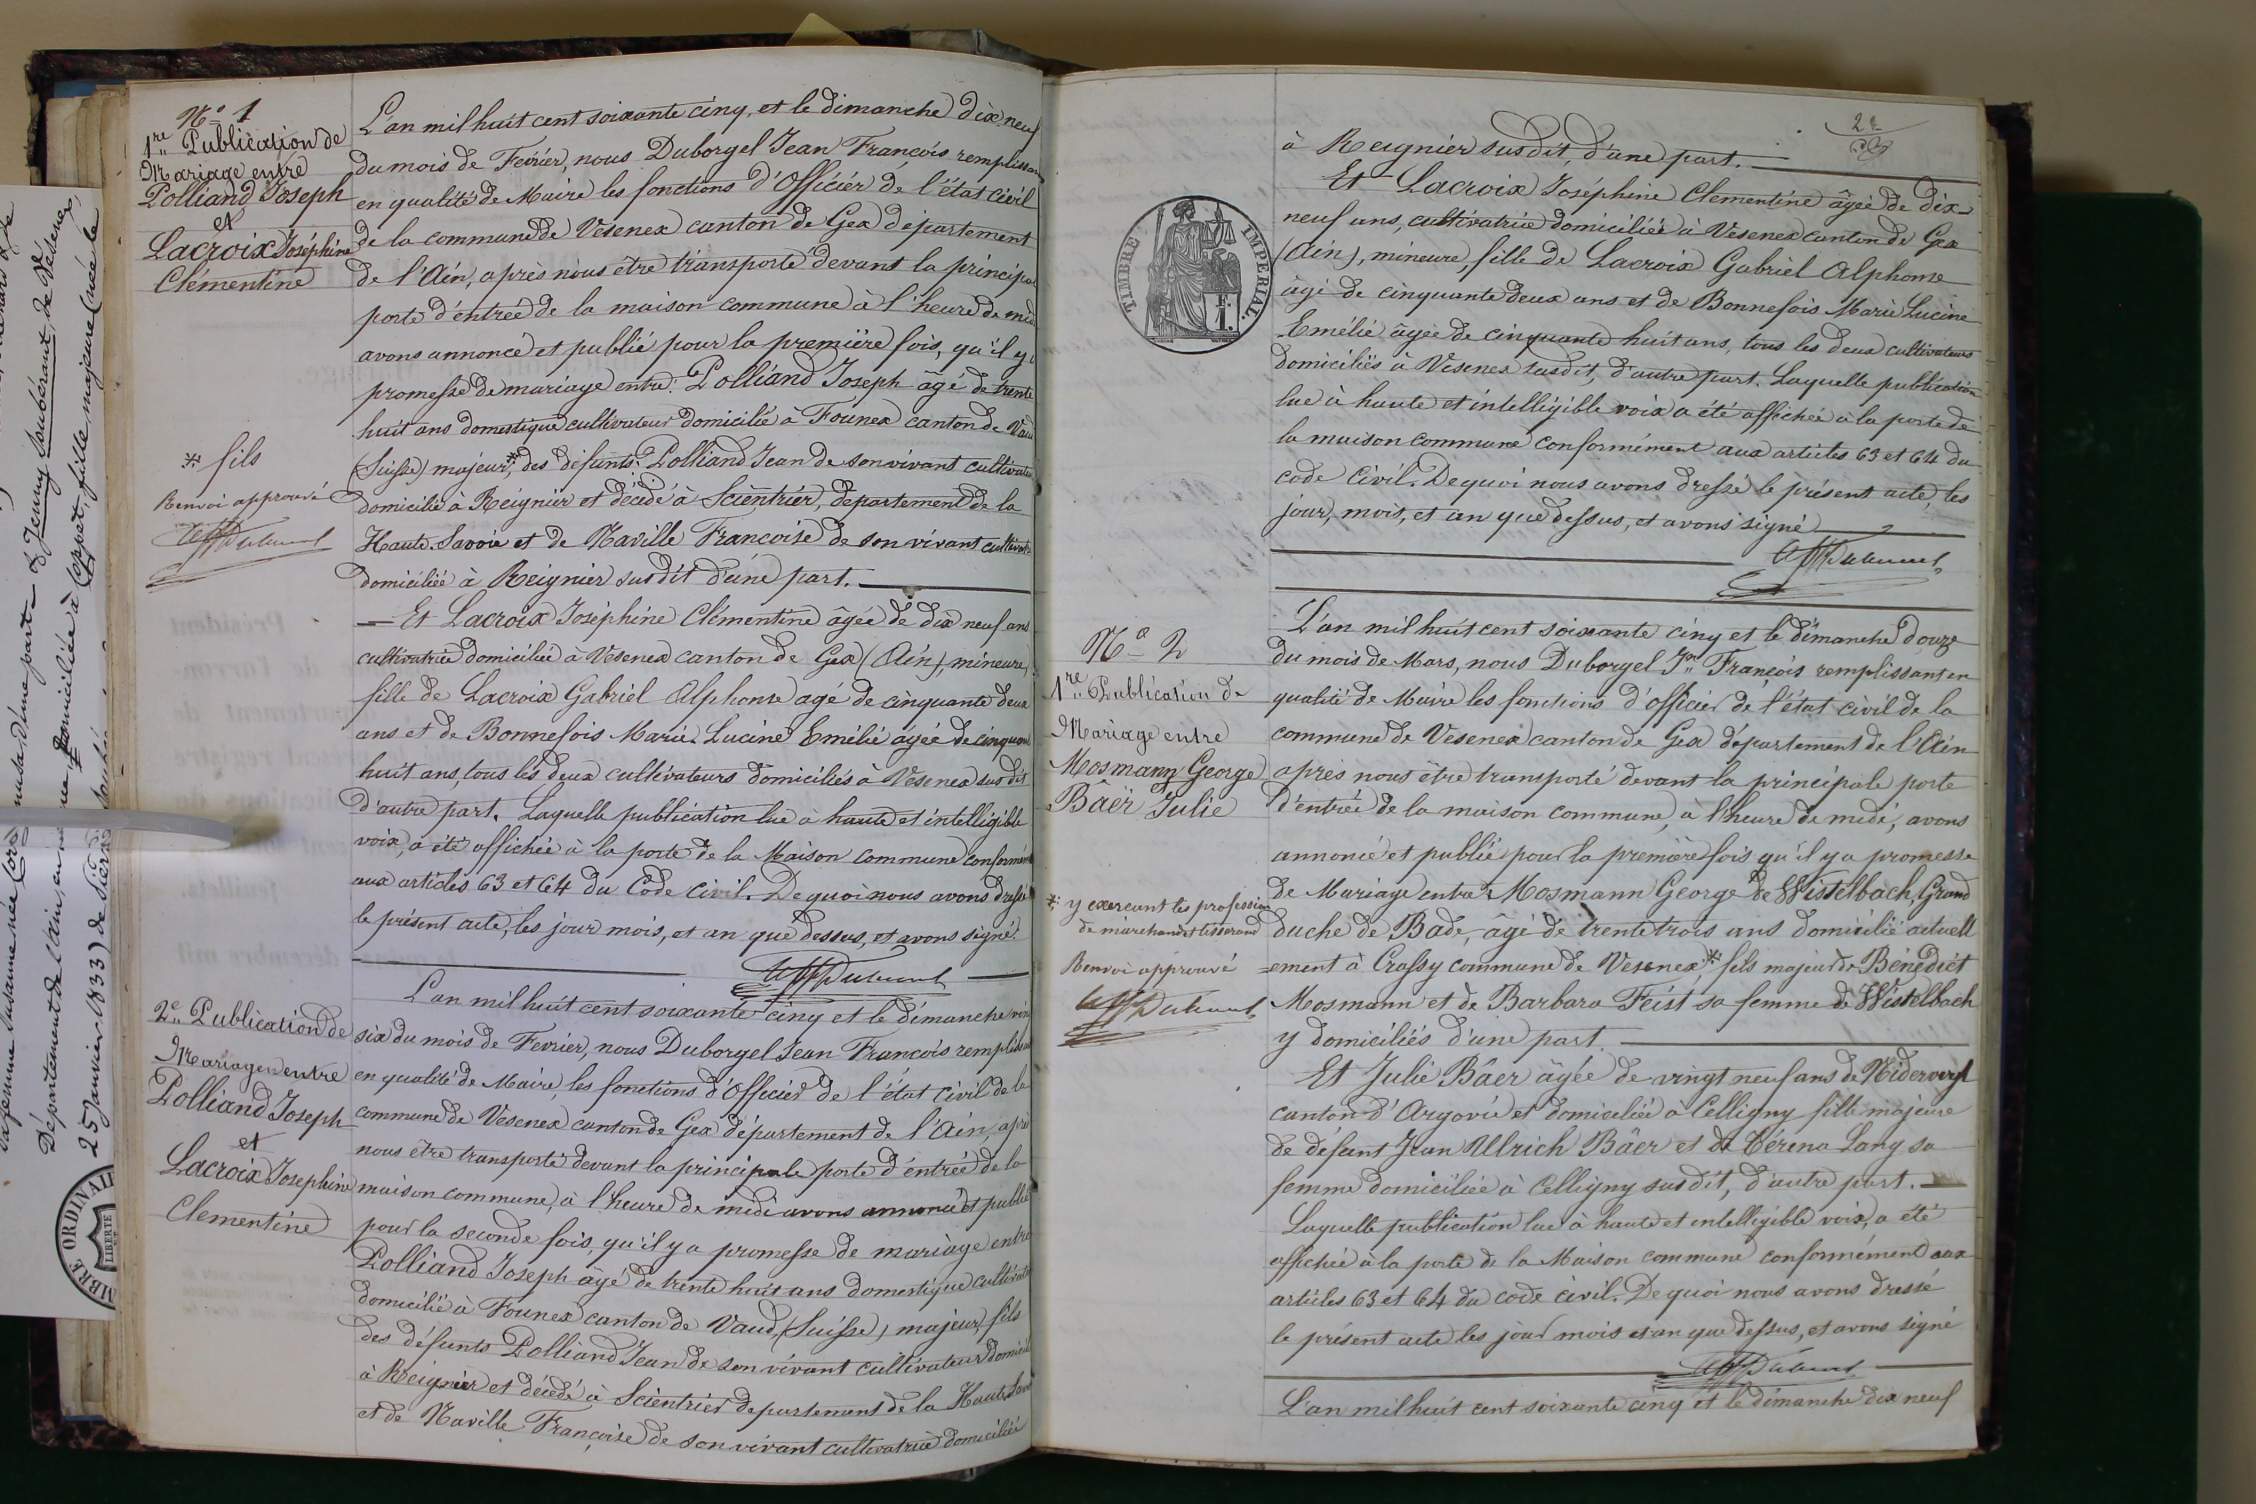 N° 1
1re Publication de
Mariage entre
Polliand Joseph
et
Lacroix Joséphine
Clémentine
L'an mil huit cent soixante cinq, et le dimanche dix neuf
du mois de Fevrier, nous Duborgel Jean François remplissan
en qualité de Maire les fonctions d'Officier de l'état civil
de la commune de Vesenex canton de Gex departement
de l'Ain, après nous être transporté devant la principa
porte d'entrée de la maison commune à l'heure de mid
avons annoncé et publié pour la première fois, qu'il y a
promesse de mariage entre: Polliand Joseph âgé de trente
huit ans domestique cultivateur domicilié à Founex canton de Vaud
(Suisse) majeur,* des défunts: Polliand Jean de son vivant cultivateu
domicilié à Reignier et décédé à Scientrier, département de la
Haute-Savoie et de Naville Françoise de son vivant cultivatr
domiciliée à Reignier susdit d'une part.
* fils
Renvoi approuvé
— Et Lacroix Joséphine Clémentine âgée de dix neuf ans
cultivatrice domiciliée à Vesenex canton de Gex (Ain), mineure,
fille de Lacroix Gabriel Alphonse agé de cinquante deux
ans et de Bonnefois Marie Lucine Emélie agée de cinquan
huit ans, tous les deux cultivateurs domiciliés à Vesenex susdit
d'autre part. Laquelle publication lue à haute et intelligible
voix, a été affichée à la porte de la Maison commune conformém
aux articles 63 et 64 du Code civil. De quoi nous avons dressé
le présent acte, les jour mois, et an que dessus, et avons signé.
2e Publication de
Mariage entre
Polliand Joseph
et
Lacroix Josephine
Clementine
L'an mil huit cent soixante cinq et le dimanche vin
six du mois de Fevrier, nous Duborgel Jean François remplissa
en qualité de Maire, les fonctions d'Officier de l'état civil de la
commune de Vesenex canton de Gex département de l'Ain, aprè
nous être transporté devant la principale porte d'entrée de la
maison commune, à l'heure de midi avons annoncé et publié
pour la seconde fois, qu'il y a promesse de mariage entre
Polliand Joseph âgé de trente huit ans domestique cultivate
domicilié à Founex canton de Vaud, (Suisse) majeur, fils
des défunts Polliand Jean de son vivant cultivateur domicilié
à Reignier et décédé à Scientrier departement de la Haute Savoi
et de Naville Françoise de son vivant cultivatrice domiciliée
2e
à Reignier susdit, d'une part.
Et Lacroix Joséphine Clementine âgée de dix-
neuf ans, cultivatrice domiciliée à Vesenex canton de Gex
(Ain), mineure, fille de Lacroix Gabriel Alphonse
âgé de cinquante deux ans et de Bonnefois Marie Lucine
Emélie âgée de cinquante huit ans, tous les deux cultivateurs
domiciliés à Vesenex susdit, d'autre part. Laquelle publication
lue à haute et intelligible voix a été affichée à la porte de
la maison commune conformément aux articles 63 et 64 du
code Civil. De quoi nous avons dressé le présent acte, les
jour, mois, et an que dessus, et avons signé
TIMBRE IMPERIAL.
N° 2
1re Publication de
Mariage entre
Mosmann George
et
Bâër Julie
L'an mil huit cent soixante cinq et le dimanche douze
du mois de Mars, nous Duborgel Jn François remplissant en
qualité de Maire les fonctions d'officier de l'état civil de la
commune de Vesenex canton de Gex département de l'Ain
après nous être transporté devant la principale porte
d'entrée de la maison commune, à l'heure de midi, avons
annoncé et publié pour la première fois qu'il y a promesse
de Mariage entre Mosmann George de Wistelbach, Grand
duche de Bade, âgé de trente trois ans domicilié actuell
ement à Crassy commune de Vesenex,* fils majeur de Bénédict
Mosmann et de Barbara Feist sa femme de Wistelbach
y domiciliés d'une part
* y exercant les profession
de marchand et tisserand
Renvoi approuvé
Et Julie Bâer âgée de vingt neuf ans de Niderwyl
canton d'Argovie et domiciliée à Celligny fille majeure
de défunt Jean Ullrich Bâer et de Vérena Lang sa
femme domiciliée à Celligny susdit, d'autre part.
Laquelle publication lue à haute et intelligible voix, a été
affichée à la porte de la Maison commune conformément aux
articles 63 et 64 du code civil. De quoi nous avons dressé
le présent acte les jour mois et an que dessus, et avons signé
L'an mil huit cent soixante cinq et le dimanche dix neuf
d'une part — & Jenny Soubérant, de Vésenex,
Département de l'Ain, domiciliée à Coppet, fille majeure (née le
25 Janvier 1833) de
ORDINAIRE
LIBERTE